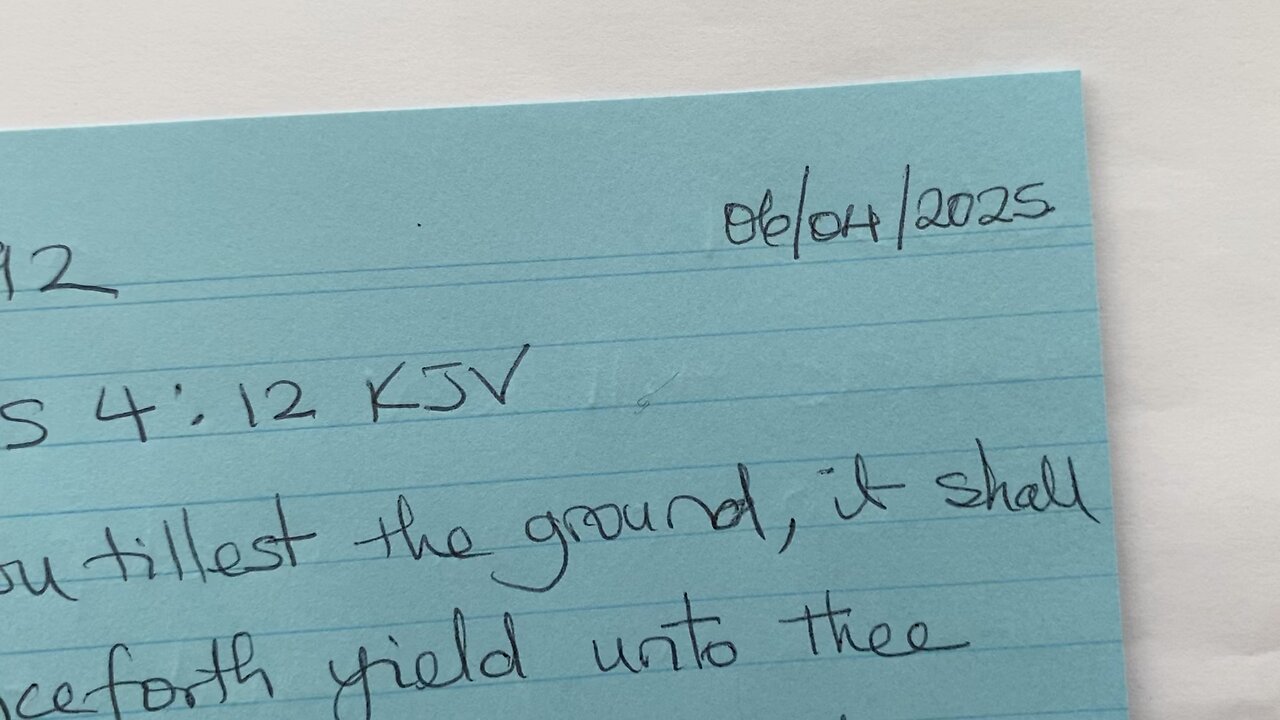 06/04/2025
92
s 4:12 KJV
ou tillest the ground, it shall
ceforth yield unto thee